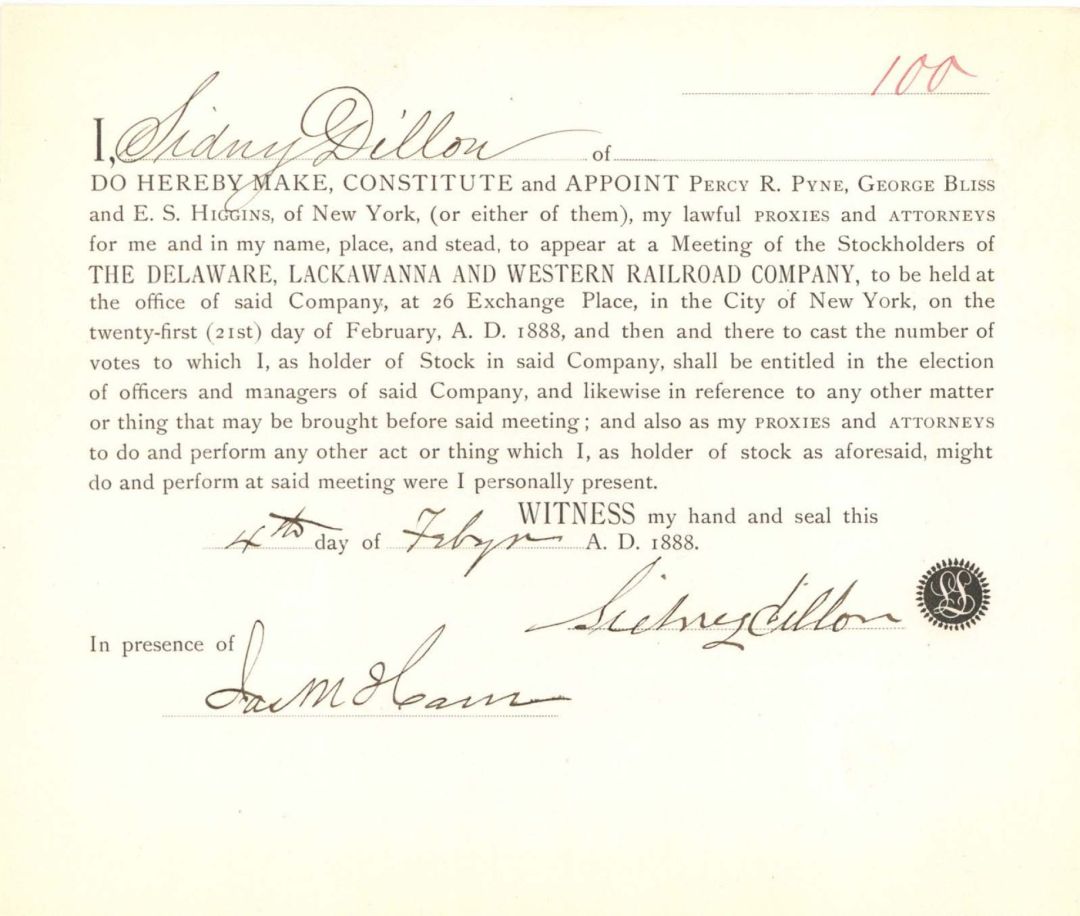 100
I, Sidney Dillon of
DO HEREBY MAKE, CONSTITUTE and APPOINT PERCY R. PYNE, GEORGE BLISS
and E. S. HIGGINS, of New York, (or either of them), my lawful PROXIES and ATTORNEYS
for me and in my name, place, and stead, to appear at a Meeting of the Stockholders of
THE DELAWARE, LACKAWANNA AND WESTERN RAILROAD COMPANY, to be held at
the office of said Company, at 26 Exchange Place, in the City of New York, on the
twenty-first (21st) day of February, A. D. 1888, and then and there to cast the number of
votes to which I, as holder of Stock in said Company, shall be entitled in the election
of officers and managers of said Company, and likewise in reference to any other matter
or thing that may be brought before said meeting; and also as my PROXIES and ATTORNEYS
to do and perform any other act or thing which I, as holder of stock as aforesaid, might
do and perform at said meeting were I personally present.
WITNESS my hand and seal this
4th day of Febyr A. D. 1888.
Sidney Dillon
LS
In presence of
Jas M Ham